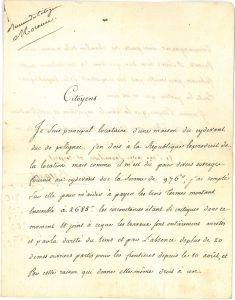 Citoyens
Je suis principal locataire d'une maison du cydevant
duc de polignac, j'en dois à la République le produit de
la location mais comme il m'est dû pour divers ouvrages
fournis au cydevant duc la somme de 976# j'ai compté
sur elle pour m'aider à payer les trois termes montant
ensemble à 2685# les circonstances étant si critiques dans ce
moment et joint à ce que les travaux sont entièrement arrêtés
et par la dureté du tems et par l'absence depuis de 20
de mes ouvriers partis pour les frontières depuis le 10 août, et
par cette raison qui donne elle même droit à un